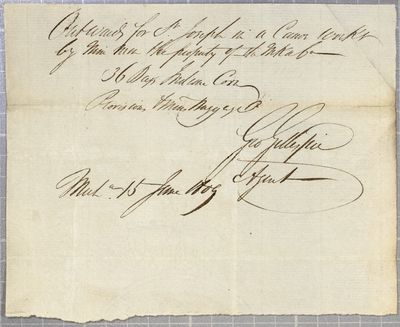 Outwards for St Joseph in a Canoe workt
by Nine Men the property of the McKa &
36 Bags Indian Corn
Provisions & Mens Baggage
Geo Gillespie
Agent
Mich.a 15 June 1809